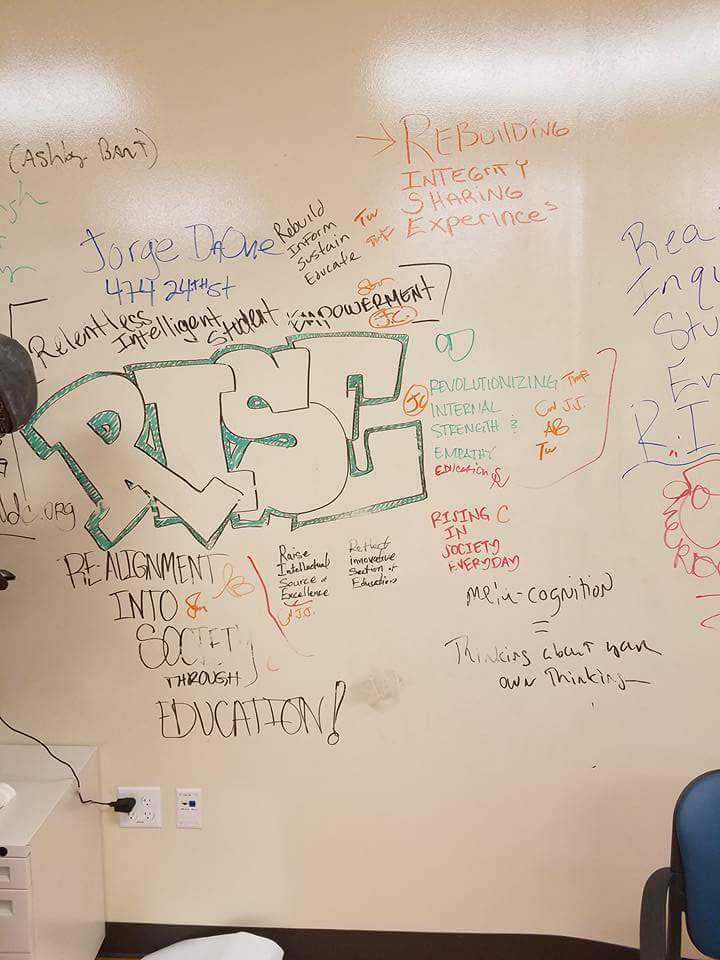 (Ashby Bart)
→ REBUILDING
INTEGRITY
SHARING
Experinces
Jorge DaOne
474 24TH St
Rebuild
Inform
Sustain
Educate
TW
Relentless
Intelligent
Student
EMPOWERMENT
JC.
RISE
REVOLUTIONIZING
INTERNAL
STRENGTH &
EMPATHY
Education
JC
CW J.J.
AB
TW
Rea
Inqu
Stu
En
R.I
dc.org
RISING C
IN
SOCIETY
EVERYDAY
RE-ALIGNMENT
INTO
SOCIETY
THROUGH
EDUCATION!
AB
C
Raise
Intellectual
Source of
Excellence
J.J.
innovative
Section of
Education
cognition
=
Thinking about your
own Thinking